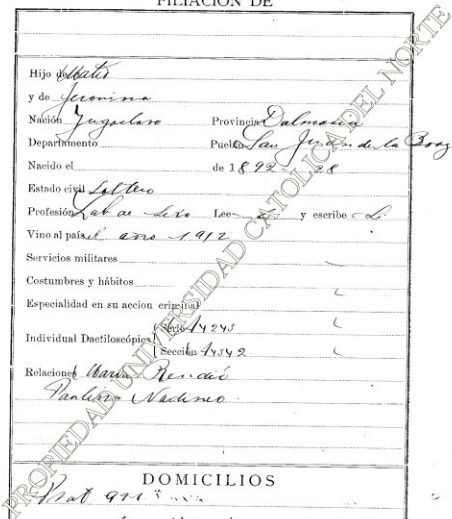 FILIACION DE
Hijo de Mateo
y de Jeronima
Nación Jugoeslavo Provincia Dalmacia
Departamento Pueblo San Juan de la Braz
Nacido el de 1892 - 28
Estado civil Soltero
Profesión Lab de Sexo Lee Si y escribe Si
Vino al país el año 1912
Servicios militares
Costumbres y hábitos
Especialidad en su accion criminal
Individual Dactiloscópica Serie 14243
Sección 14342
Relaciones Maria
Paulina
DOMICILIOS
Prat 911
PROPIEDAD UNIVERSIDAD CATOLICA DEL NORTE